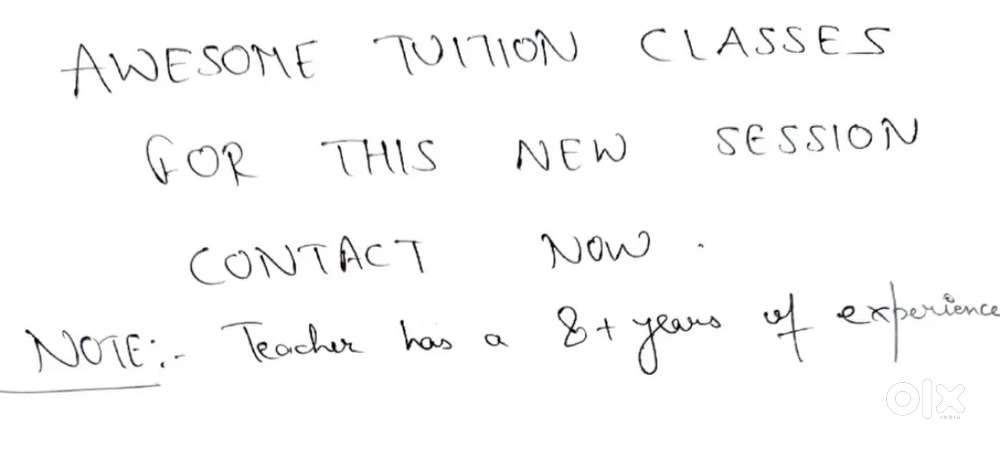 AWESOME TUITION CLASSES
FOR THIS NEW SESSION
CONTACT NOW.
NOTE:- Teacher has a 8+ years of experience
olx
INDIA